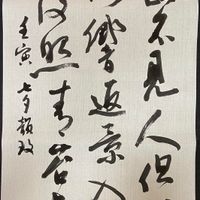 不見人但
響返景入
復照青苔
壬寅 七夕